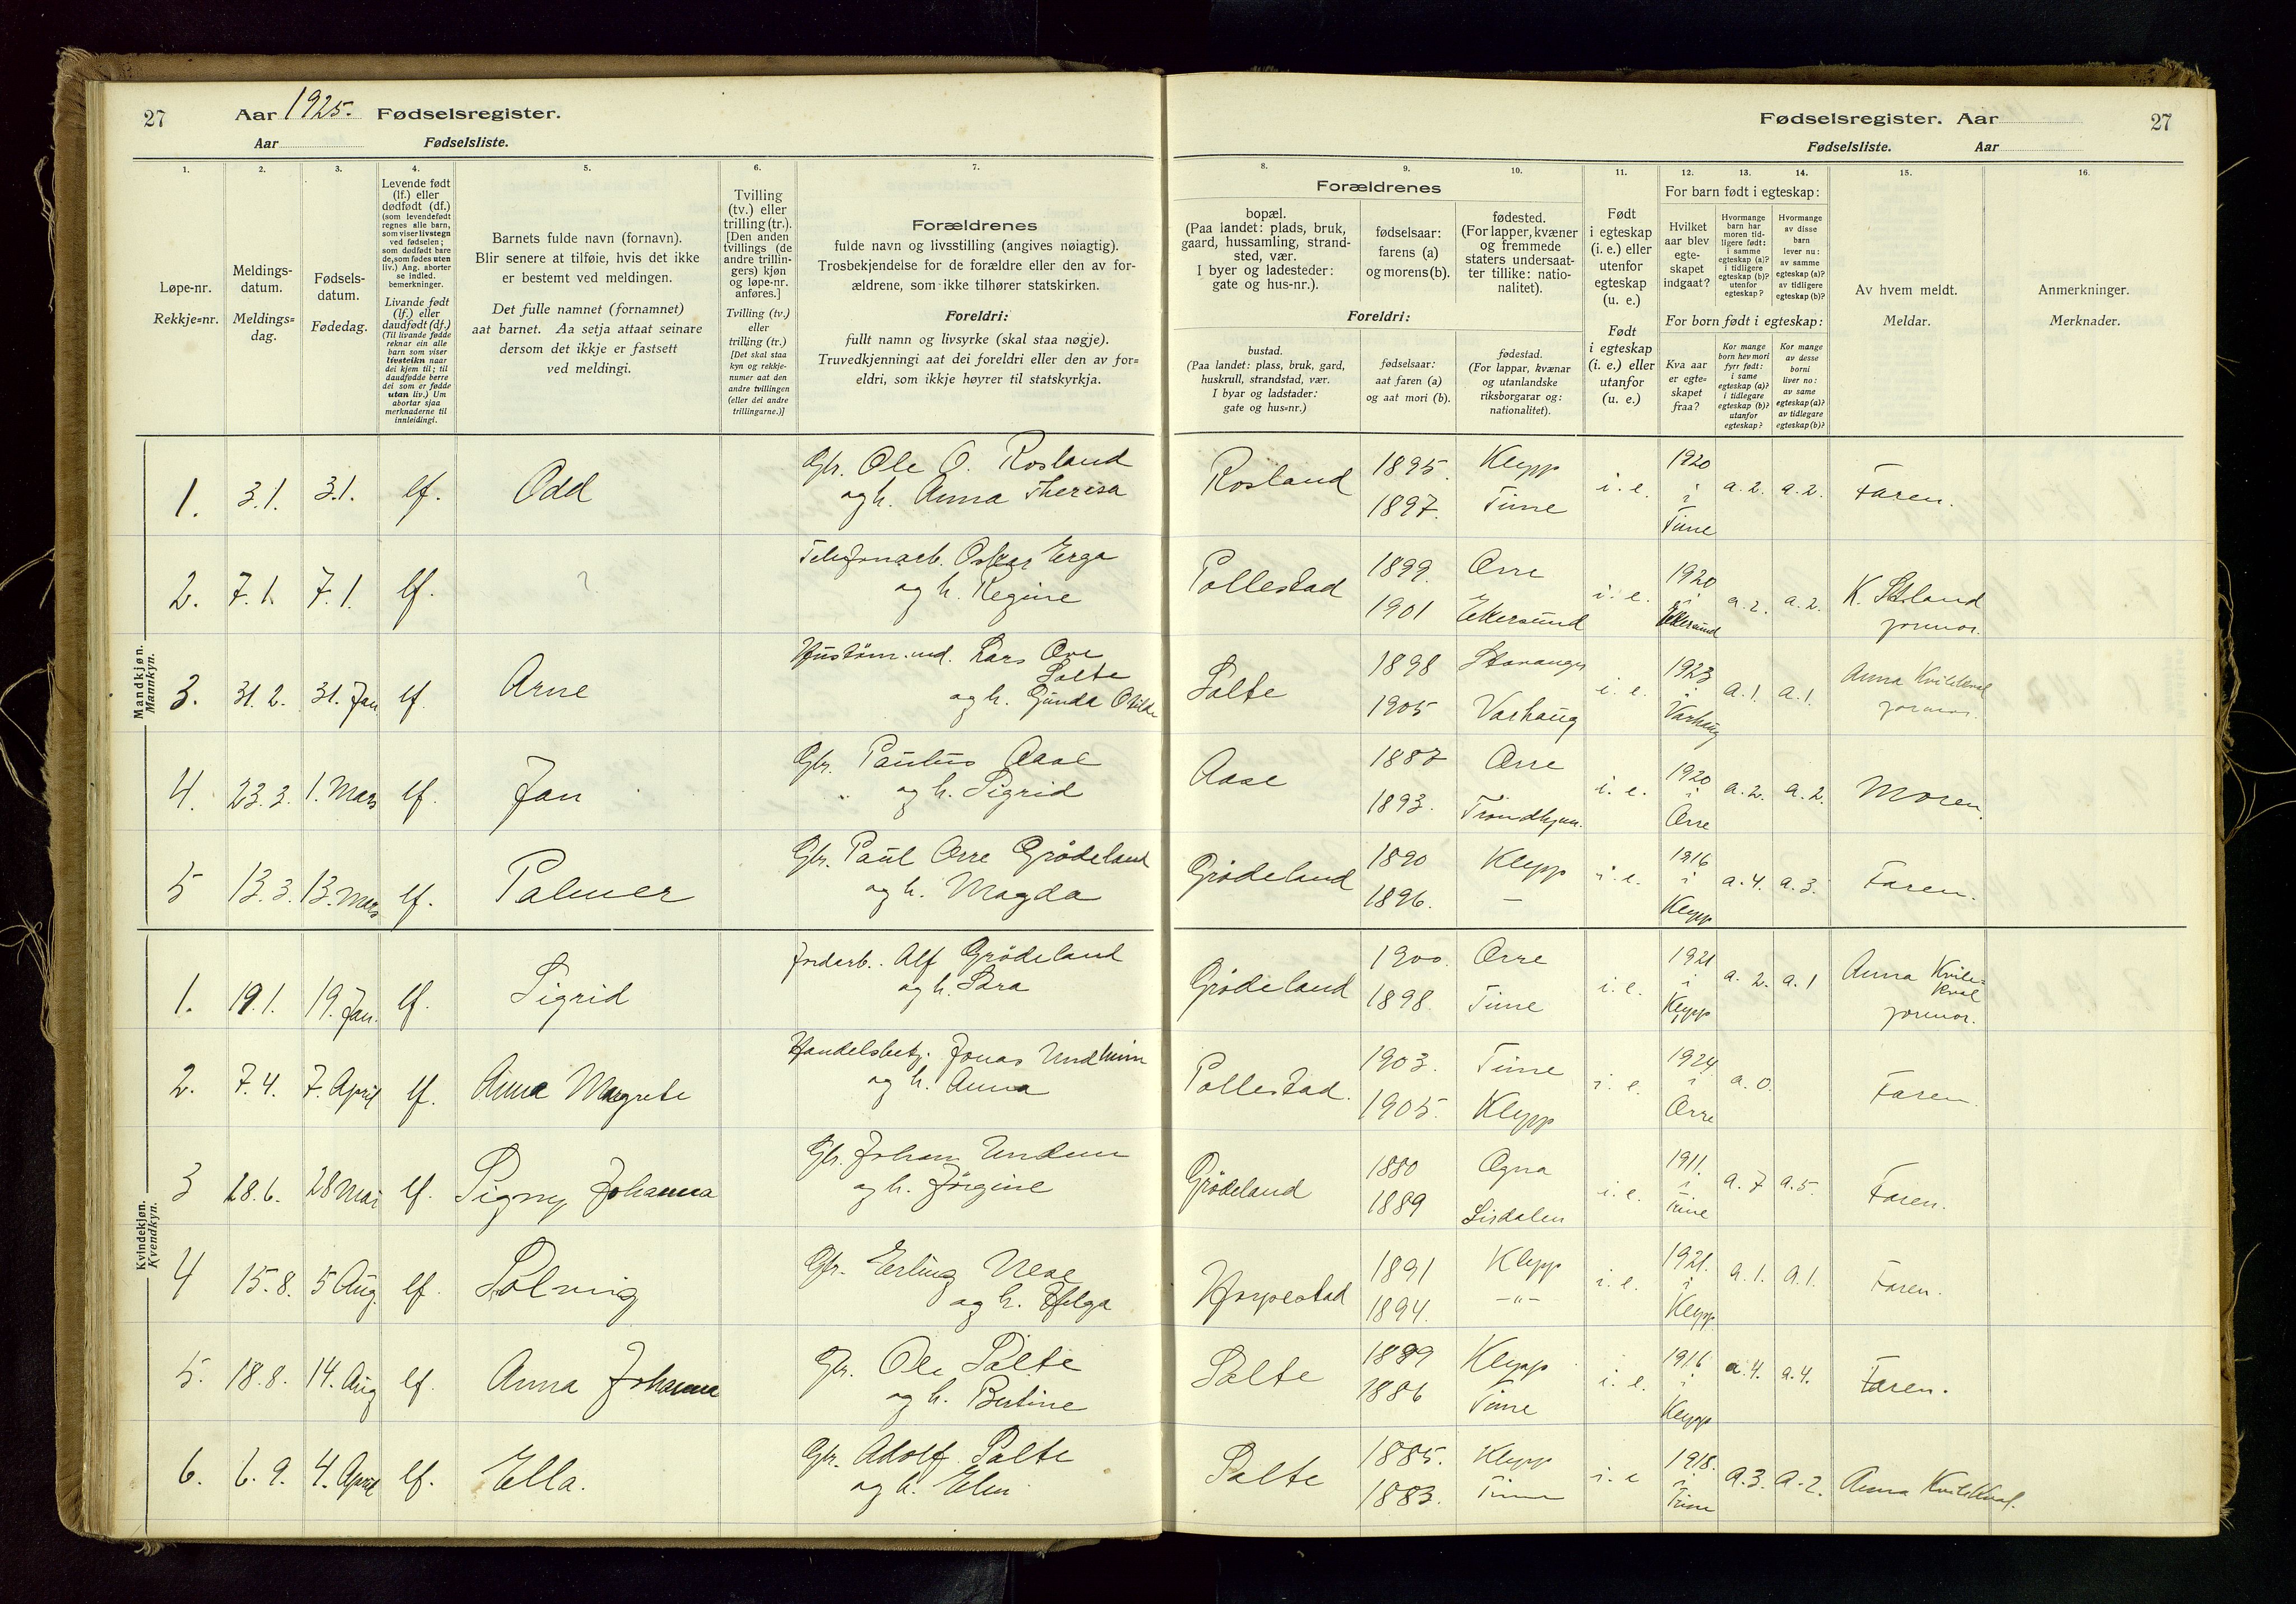 27
Aar 1925. Fødselsregister.
Aar
Fødselsliste.
Fødselsregister. Aar
27
Fødselsliste.
Aar
1.
2.
3.
4.
5.
6.
7.
8.
9.
10.
11.
12.
13.
14.
15.
16.
Løpe-nr.
Rekkje=nr.
Meldings-
datum.
Meldings=
dag.
Fødsels-
datum.
Fødedag.
Levende født
(lf.) eller
dødfødt (df.)
(som levendefødt
regnes alle barn,
som viser livstegn
ved fødselen;
som dødfødt bare
de, som fødes uten
liv.) Ang. aborter
se indled.
bemerkninger.
Livande født
(lf.) eller
daudfødt (df.)
(Til livande fødde
reknar ein alle
barn som viser
livsteikn naar
dei kjem til; til
daudfødde berre
dei som er fødde
utan liv.) Um
abortar sjaa
merknaderne til
innleidingi.
Barnets fulde navn (fornavn).
Blir senere at tilføie, hvis det ikke
er bestemt ved meldingen.
Det fulle namnet (fornamnet)
aat barnet. Aa setja attaat seinare
dersom det ikkje er fastsett
ved meldingi.
Tvilling
(tv.) eller
trilling (tr.).
[Den anden
tvillings (de
andre trillin-
gers) kjøn
og løpe-nr.
anføres.]
Tvilling (tv.)
eller
trilling (tr.)
[Det skal staa
kyn og rekkje-
numer aat den
andre tvillingen
(eller dei andre
trillingarne.)]
Forældrenes
fulde navn og livsstilling (angives nøiagtig).
Trosbekjendelse for de forældre eller den av for-
ældrene, som ikke tilhører statskirken.
Foreldri:
fullt namn og livsyrke (skal staa nøgje).
Truvedkjenningi aat dei foreldri eller den av for=
eldri, som ikkje høyrer til statskyrkja.
Forældrenes
bopæl.
(Paa landet: plads, bruk,
gaard, hussamling, strand-
sted, vær.
I byer og ladesteder:
gate og hus-nr.).
fødselsaar:
farens (a)
og morens (b).
fødested.
(For lapper, kvæner
og fremmede
staters undersaat-
ter tillike: natio-
nalitet).
Foreldri:
bustad.
(Paa landet: plass, bruk, gard,
huskrull, strandstad, vær.
I byar og ladstader:
gate og hus=nr.)
fødselsaar:
aat faren (a)
og aat mori (b).
fødestad.
(For lappar, kvænar
og utanlandske
riksborgarar og:
nationalitet).
Født
i egteskap
(i. e.) eller
utenfor
egteskap
(u. e.)
Født
i egteskap
(i. e.) eller
utanfor
(u. e.)
For barn født i egteskap:
Hvilket
aar blev
egte-
skapet
indgaat?
Hvormange
barn har
moren tid-
ligere født:
i samme
egteskap (a)?
i tidligere
egteskap (b)?
utenfor
egteskap?
Hvormange
av disse
barn
lever nu:
av samme
egteskap (a)?
av tidligere
egteskap (b)?
For born født i egteskap:
Kva aar
er egte=
skapet
fraa?
Kor mange
born hev mori
fyrr født:
i same
egteskap (a)?
i tidlegare
egteskap (b)?
utanfor
egteskap?
Kor mange
av desse
borni
liver no:
av same
egteskap (a)?
av tidlegare
egteskap (b)?
Av hvem meldt.
Meldar.
Anmerkninger.
Merknader.
Mandkjøn.
Mannkyn.
1. 3.1. 3.1. lf. Odd Gbr. Ole O. Rosland
og h. Anna Theresa
Rosland 1895. Klepp i. e. 1920 a. 2. a. 2. Faren.
1897. Time i Time
2. 7.1. 7.1. lf. ? Telefonarb. Oskar Erga
og h. Regine
Pollestad 1899. Orre i. e. 1920 a. 2. a. 2. K. Stland
1901 Ekersund i Ekersund jormor.
3. 31. 2. 31. Jan lf. Arne Hustøm.md. Lars Ove
Salte
og h. Gunda Otilde
Salte 1898 Stavanger i. e. 1923 a. 1 a. 1. Anna Kvilekval
1905 Varhaug i Varhaug jormor.
4. 23. 3. 1. Mars lf. Jan Gbr. Paulus Aase
og h. Sigrid
Aase 1887 Orre i. e. 1920 a. 2. a. 2. Moren.
1893. Trondhjem. i Orre
5 13. 3. 13. Mars lf. Palmer Gbr. Paul Orre Grødeland
og h. Magda
Grødeland 1890 Klepp i. e. 1916 a. 4. a. 3. Faren.
1896. — i Klepp
Kvindekjøn.
Kvendkyn.
1. 19.1. 19. Jan. lf. Sigrid Jordarb. Alf Grødeland
og h. Sara
Grødeland 1900. Orre i. e. 1921 a. 2. a. 1 Anna Kvile=
kval
1898. Time i Klepp jormor.
2. 7.4. 7. April lf. Anna Margrete Handelsbetj. Jonas Undheim
og h. Anna
Pollestad. 1903. Time i. e. 1924 a. 0. Faren.
1905. Klepp i Orre
3 28.6. 28 Mai lf. Signy Johanna Gbr. Johan Undem
og h. Jørgine
Grødeland 1880 Ogna i. e. 1911. a. 7 a. 5. Faren.
1889 Sirdalen i Time
4 15. 8. 5 Aug. lf. Solveig Gbr. Erling Nese
og h. Helga
Horpestad 1891 Klepp i. e. 1921. a. 1. a. 1. Faren.
1894. —"— i Klepp.
5. 18.8. 14. Aug lf. Anna Johanna Gbr. Ole Salte
og h. Bertine
Salte 1889 Klepp i. e. 1916 a. 4. a. 4. Faren.
1886 Time i Klepp
6. 6. 9. 4. April lf. Ella. Gbr. Adolf Salte
og h. Elin
Salte 1885. Klepp i. e 1918. a. 3. a. 2. Anna Kvilekval.
1883. Time i Time